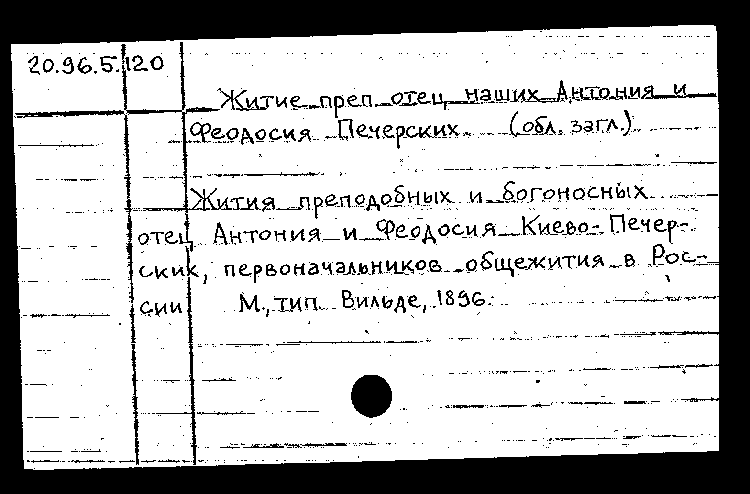 20.96.5.120
Житие преп. отец наших Антония и
Феодосия Печерских. (обл. загл.)
Жития преподобных и богоносных
отец Антония и Феодосия Киево-Печер-
ских, первоначальников общежития в Рос-
сии М., тип. Вильде, 1896.